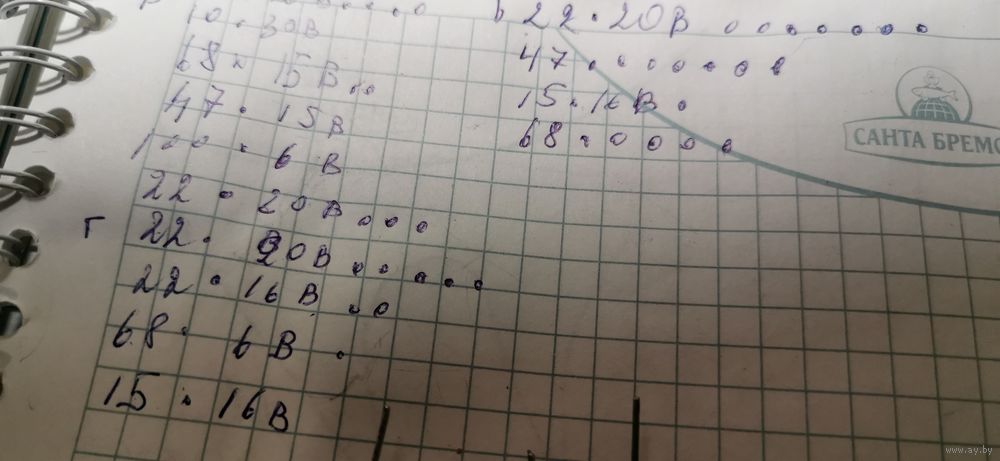 10 . 30В
68 . 15В . .
47 . 15В
100 . 6В
22 . 20В . . .
Г 22 . 20В . . . . .
22 . 16В . .
68 . 6В .
15 . 16В
22 . 20В . . . . . . .
47 . . . . . . .
15 . 16В .
68 . . . . .
САНТА БРЕМО
www.ay.by